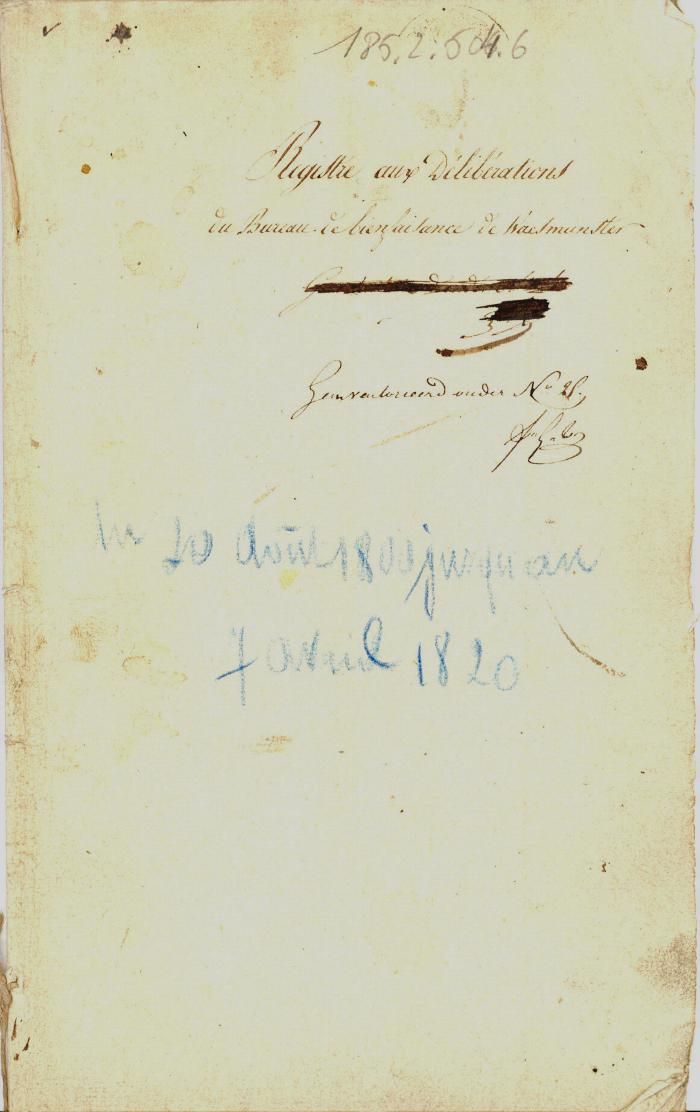 185.2.504.6
Registre aux Délibérations
du Bureau de bienfaisance de Waesmunster
Geinventorieerd onder Nº
20 Août 1806 jusqu'au
7 Avril 1820